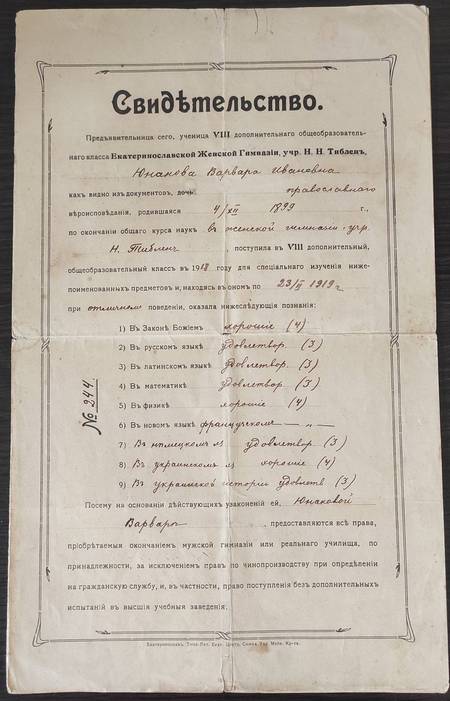 Свидѣтельство.
Предъявительница сего, ученица VIII дополнительнаго общеобразователь-
наго класса Екатеринославской Женской Гимназіи, учр. Н. Н. Тибленъ,
Юнакова Варвара Ивановна
какъ видно изъ документовъ, дочь православнаго
вѣроисповѣданія, родившаяся 4/XII 1899 г.,
по окончаніи общаго курса наукъ въ женской гимназіи, учр.
Н. Тибленъ, поступила въ VIII дополнительный,
общеобразовательный классъ въ 1918 году для спеціальнаго изученія ниже-
поименованныхъ предметовъ и, находясь въ ономъ по 23/II 1919 г.
при отличномъ поведеніи, оказала нижеслѣдующія познанія:
1) Въ Законѣ Божіемъ хорошіе (4)
2) Въ русскомъ языкѣ удовлетвор. (3)
3) Въ латинскомъ языкѣ удовлетвор. (3)
4) Въ математикѣ удовлетвор. (3)
5) Въ физикѣ хорошіе (4)
6) Въ новомъ языкѣ французскомъ — „ —
7) Въ нѣмецкомъ яз удовлетвор (3)
8) Въ украинскомъ яз хорошіе (4)
9) Въ украинской исторіи удовлетв (3)
№ 244
Посему на основаніи дѣйствующихъ узаконеній ей, Юнаковой
Варварѣ, предоставляются всѣ права,
пріобрѣтаемыя окончаніемъ мужской гимназіи или реальнаго училища, по
принадлежности, за исключеніемъ правъ по чинопроизводству при опредѣленіи
на гражданскую службу, и, въ частности, право поступленія безъ дополнительныхъ
испытаній въ высшія учебныя заведенія.